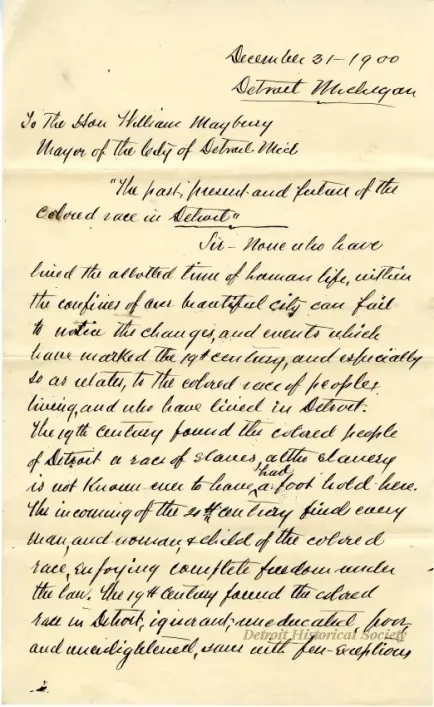 December 31-1900
Detroit Michigan
To The Hon William Maybury
Mayor of the City of Detroit Mich
"The past, present and future of the
colored race in Detroit"
Sir - None who have
lived the allotted time of human life, within
the confines of our beautiful city can fail
to notice the changes, and events which
have marked the 19th century, and especially
so as relates, to the colored race of peoples
living, and who have lived in Detroit.
The 19th century found the colored people
of Detroit a race of slaves, altho slavery
is not known ever to have had a foot hold here.
The incoming of the 20th century finds every
man, and woman, & child of the colored
race, enjoying complete freedom under
the law. The 19th century found the colored
race in Detroit, ignorant, uneducated, poor,
Detroit Historical Society
and unenlightened, save with few exceptions